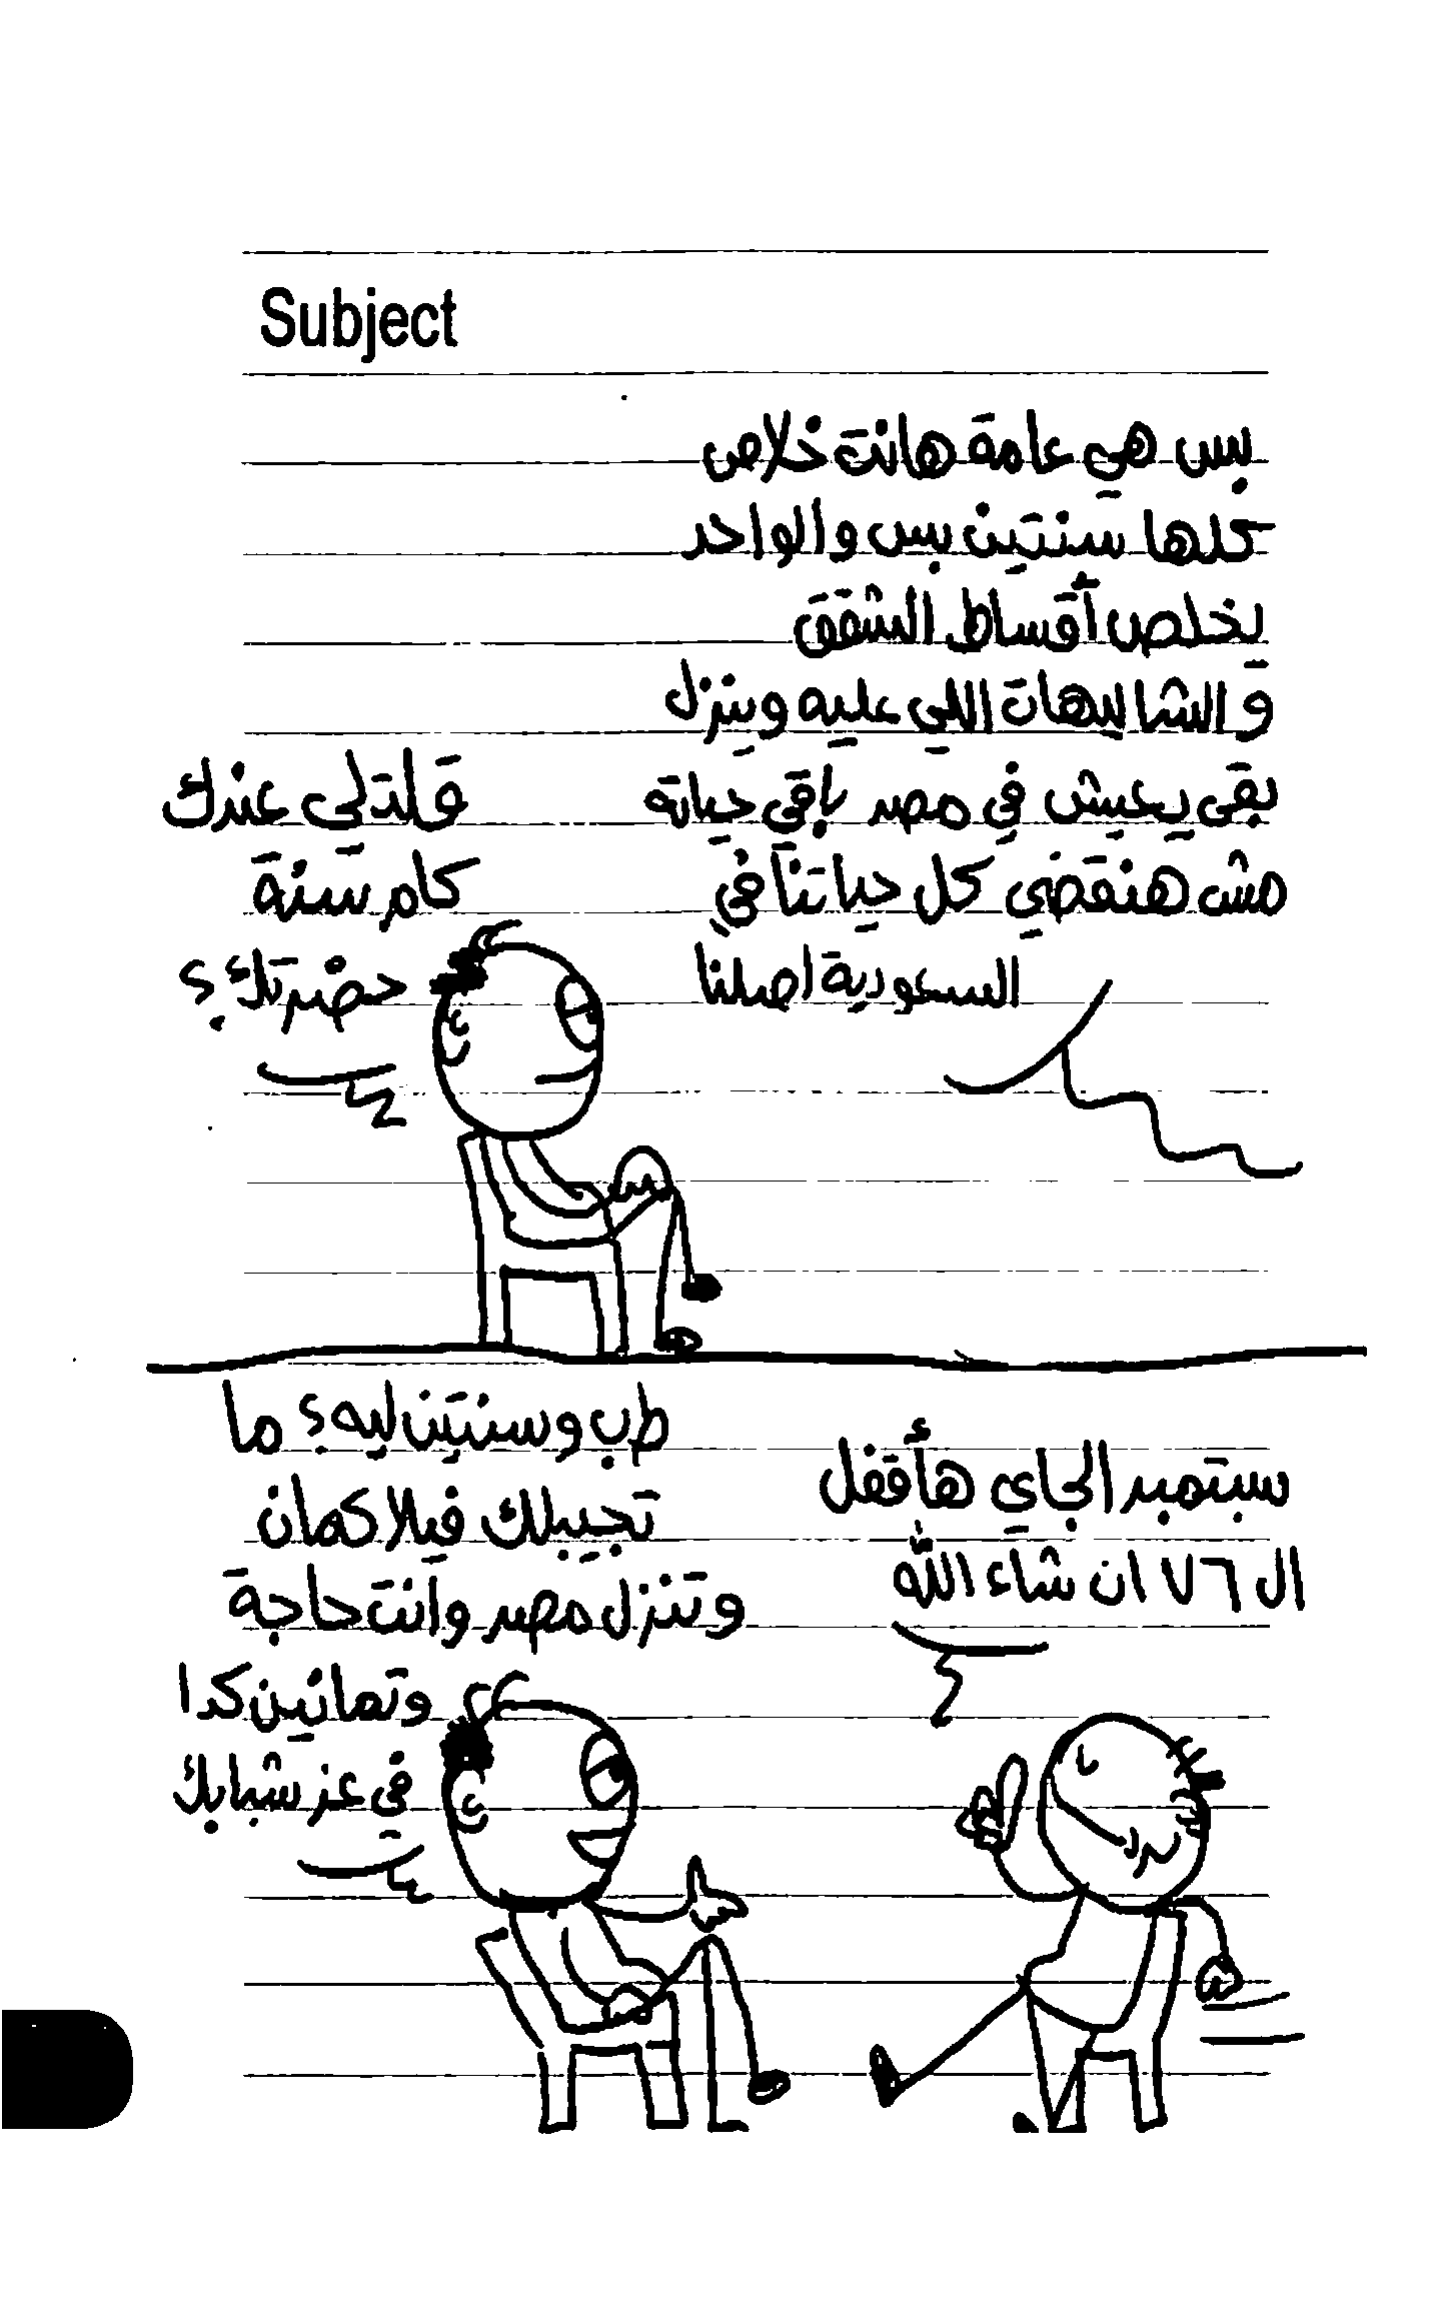 Subject
بس هي عامة هانت خلاص
كلها سنتين بس والواحد
يخلص أقساط الشقق
و الشاليهات اللي عليه وينزل
بقى يعيش في مصر باقي حياته
مش هنقضي كل حياتنا في
السعودية اصلنا
قلتلي عندك
كام سنة
حضرتك؟
سبتمبر الجاي هأقفل
ال ٧٦ ان شاء الله
طب وسنتين ليه؟ ما
تجيبلك فيلا كمان
وتنزل مصر وانت حاجة
وتمانين كدا
في عز شبابك